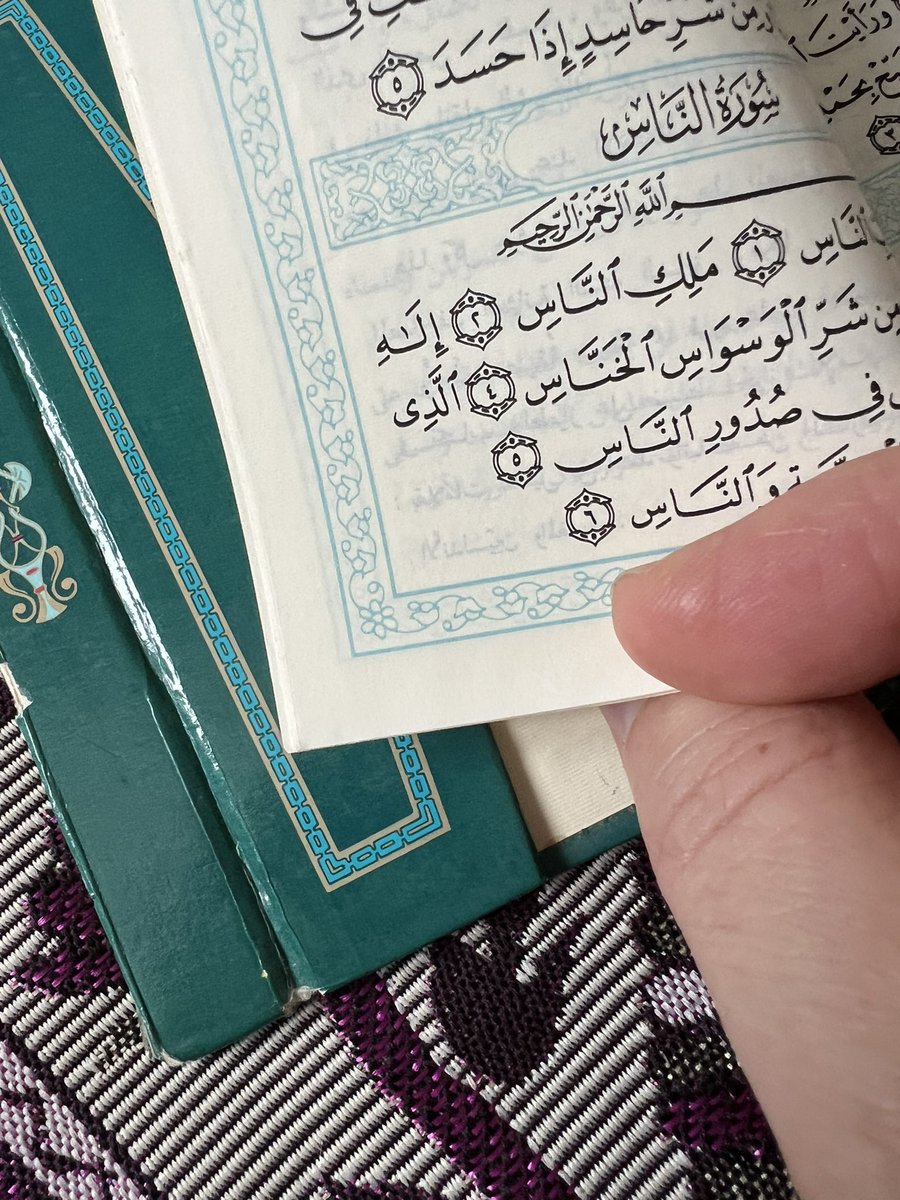 مِن شَرِّ حَاسِدٍ إِذَا حَسَدَ ۝٥
سُورَةُ النَّاسِ
بِسْمِ ٱللَّهِ ٱلرَّحْمَٰنِ ٱلرَّحِيمِ
ٱلنَّاسِ ۝١ مَلِكِ ٱلنَّاسِ ۝٢ إِلَٰهِ
مِن شَرِّ ٱلْوَسْوَاسِ ٱلْخَنَّاسِ ۝٤ ٱلَّذِى
فِى صُدُورِ ٱلنَّاسِ ۝٥
وَٱلنَّاسِ ۝٦